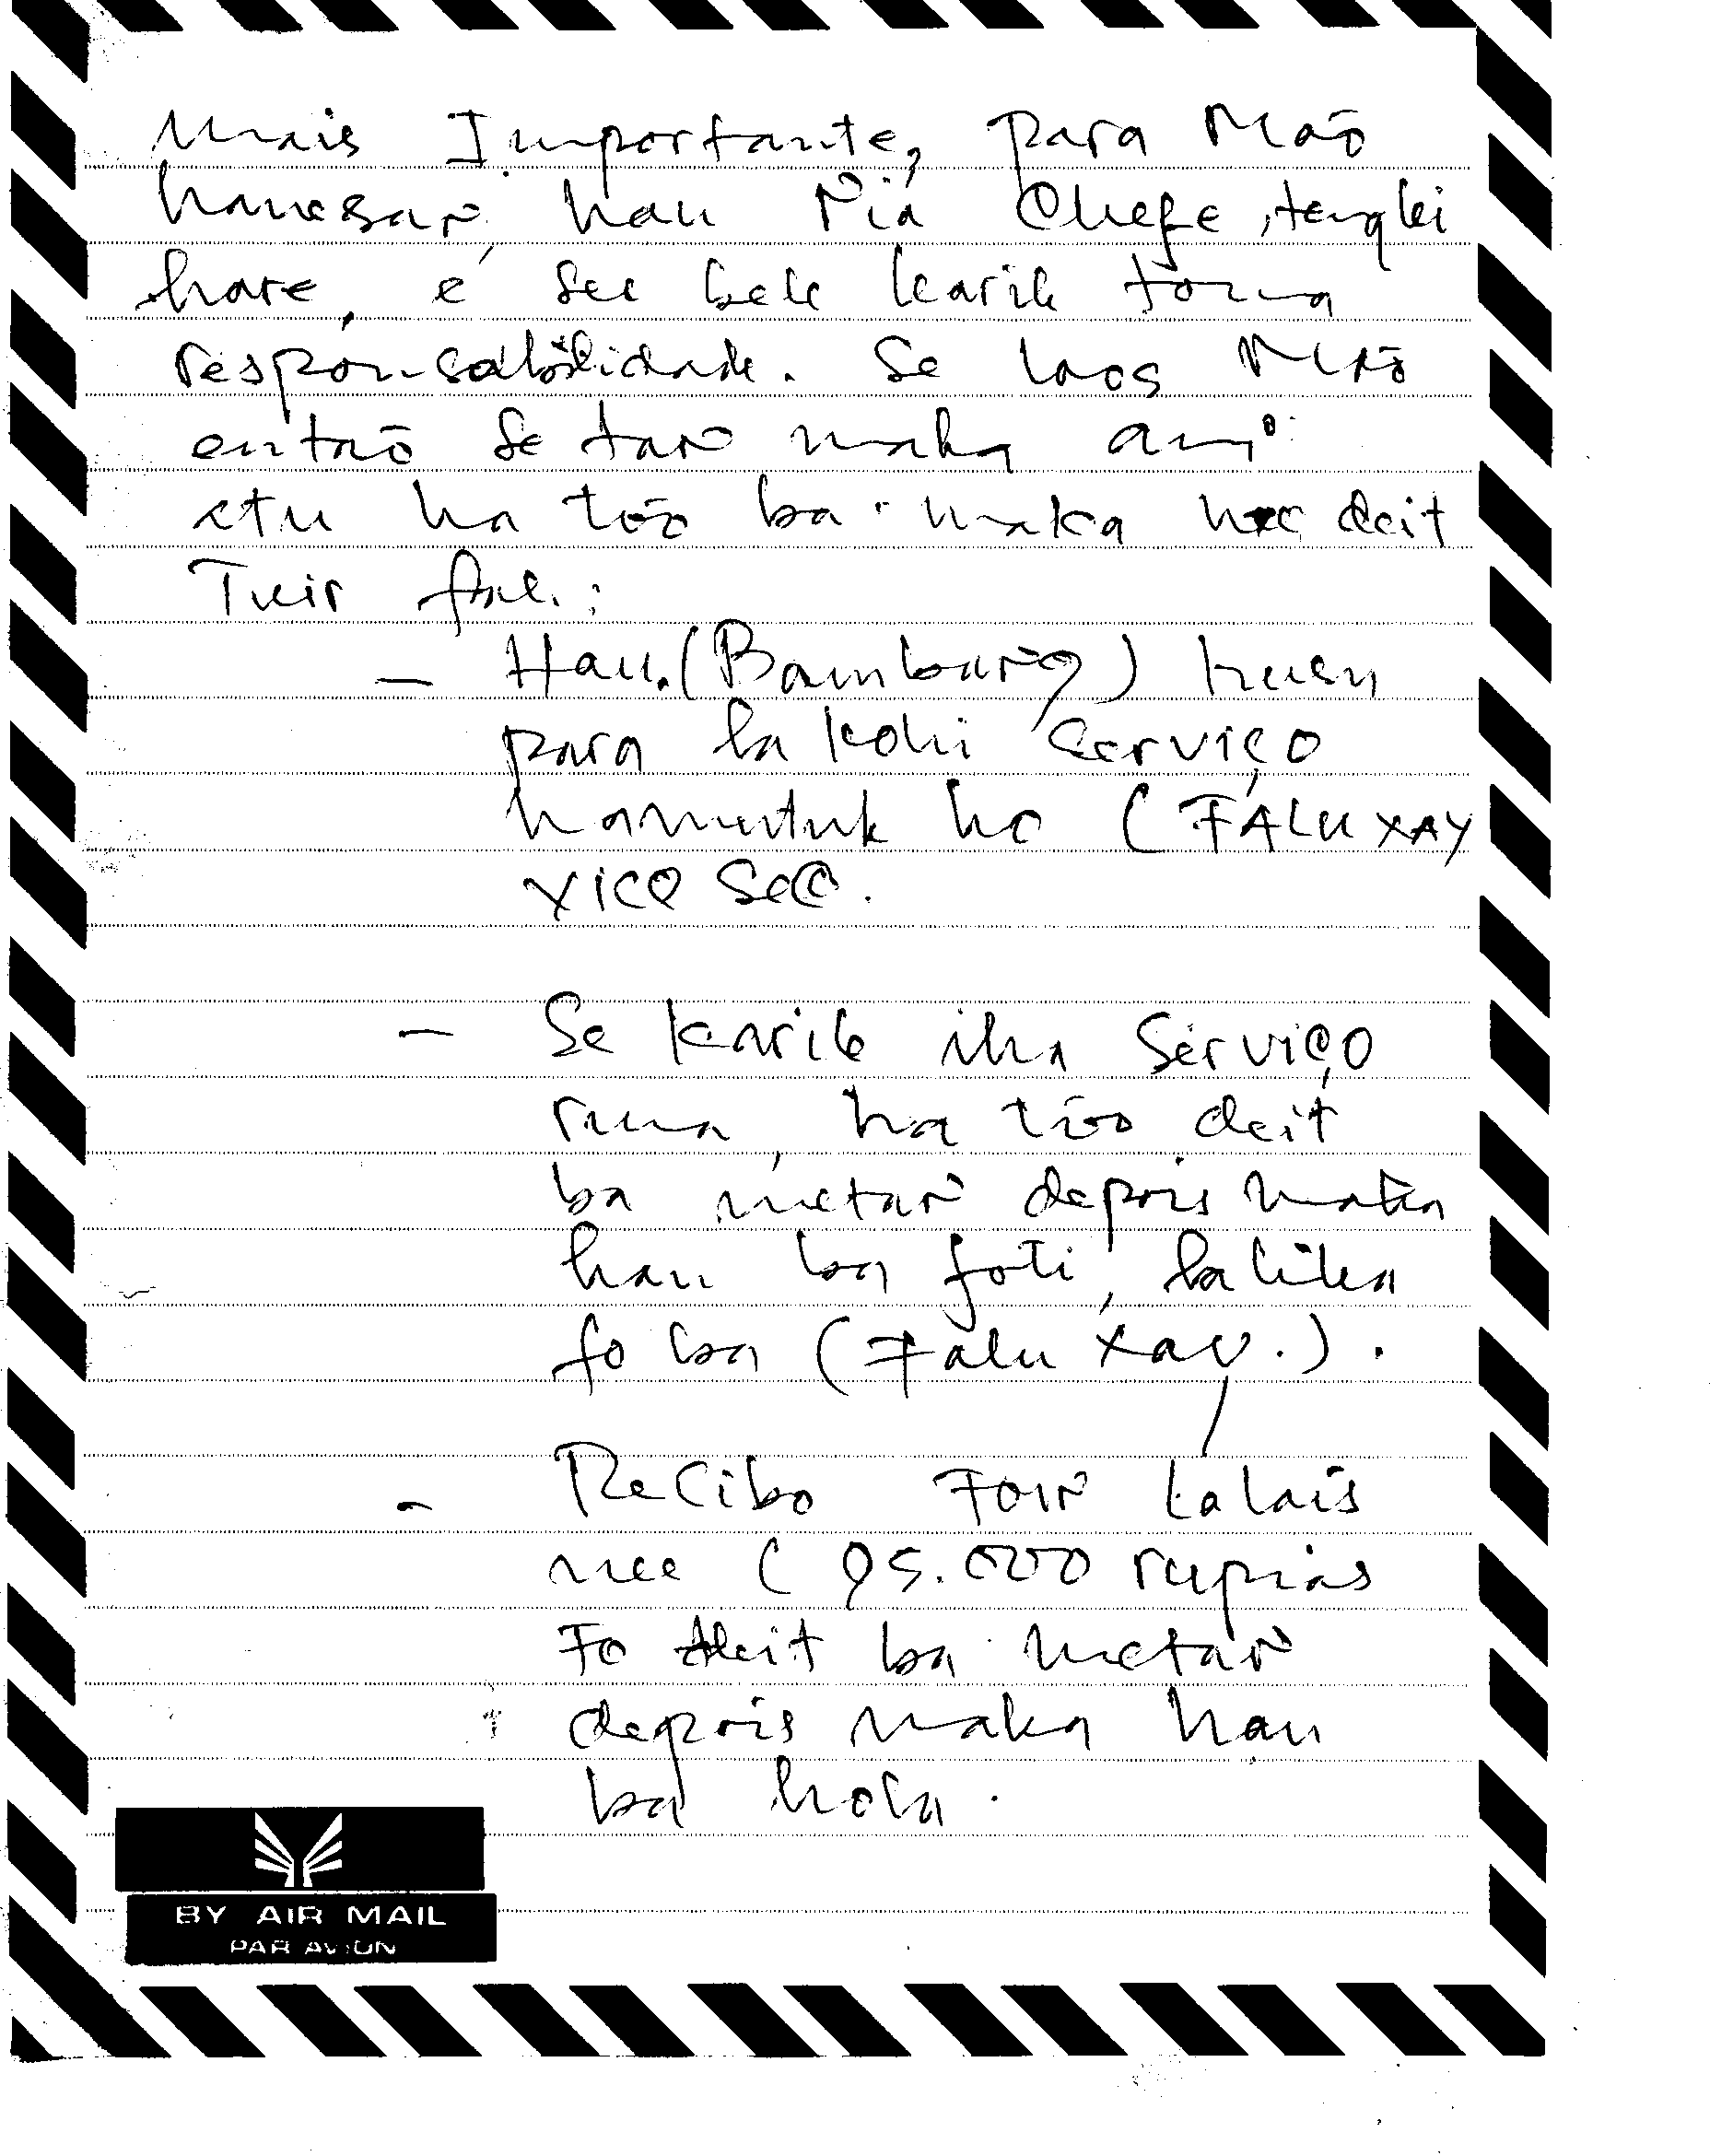 Mais Importante, para Maõ
hanesan, hau nia Chefe, tenqki
hare, e see bele karik toma
responsabilidade. Se laos Maõ
entaõ se tan maka ami
atu ha tõo ba maka nee deit
Tuir fali:
– Hau (Bamburg) husu
para la kohi Serviço
hamutuk ho (FALU XAY
XICO SeC.
– Se karik iha Serviço
ruma, ha tõo deit
ba metan depois maka
hau ba foti, la lika
fo ba (Falu Xay.).
– Recibo Foin lalais
nee (95.000 rupias
Fo deit ba metan
depois maka hau
ba hola.
BY AIR MAIL
PAR AVION